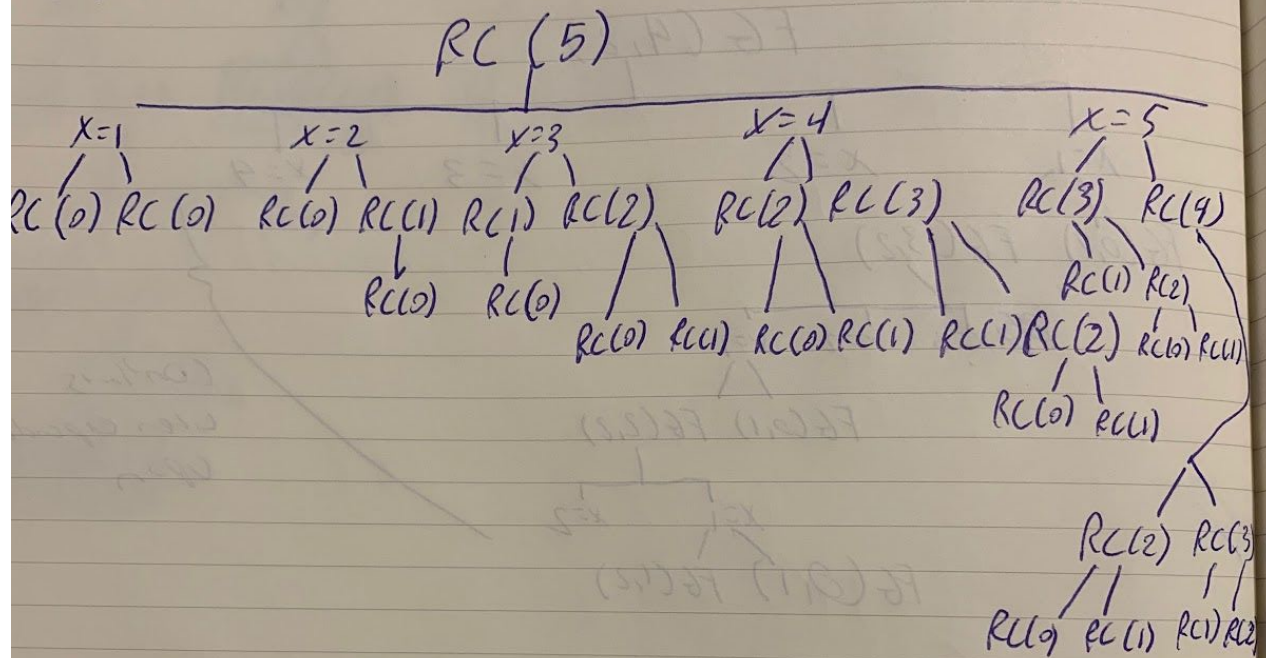 RC (5)
x=1 x=2 x=3 x=4 x=5
RC (0) RC (0) RC(0) RC(1) RC(1) RC(2) RC(2) RC(3) RC(3) RC(4)
RC(0) RC(0) RC(1) RC(2)
RC(0) RC(1) RC(0) RC(1) RC(1) RC(2) RC(0) RC(1)
RC(0) RC(1)
RC(2) RC(3)
RC(0) RC(1) RC(1) RC(2